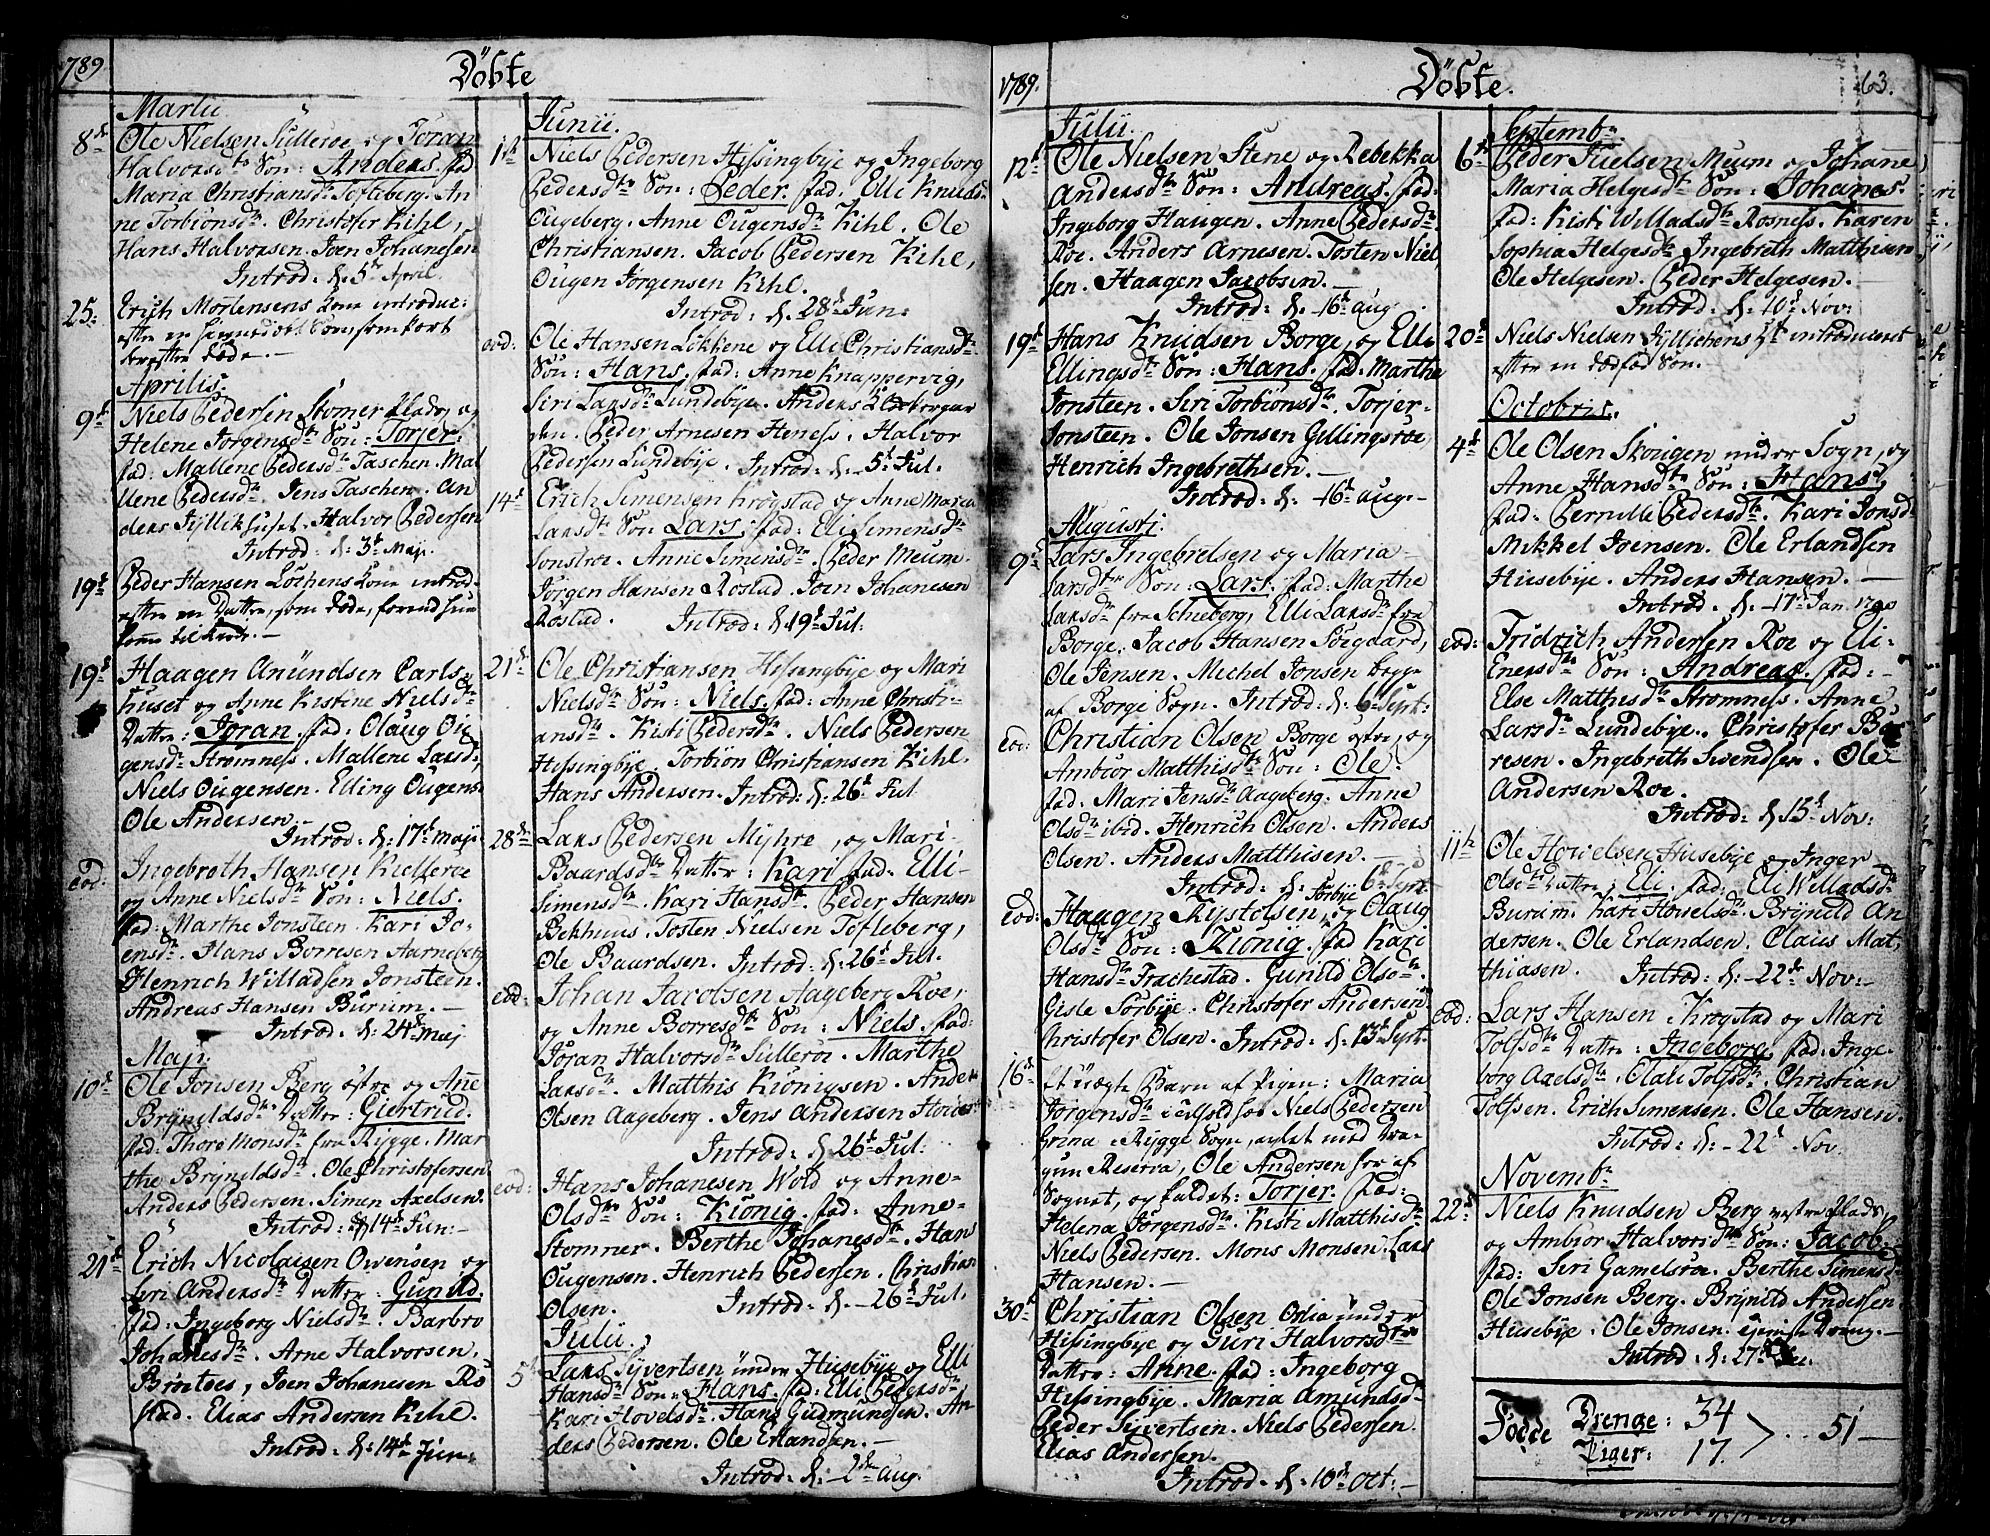 1789
Döbte
Martii
8de Ole Nielsen Sülleröe og Joran
Halvorsdtr Søn: Anders. fad
Maria Christiansd. Tofleberg. An
ne Torbionsdtr. Christofer Kihl,
Hans Halvorsen. Joen Johanesen
Introd: d. 5t April.
25. Erich Mortensens Kone introduc:
efter en hiemedöbt Søn som kort
derefter døde. –
Aprilis.
9d Niels Pedersen Stomer Plads, og
Helene Jörgensdtr Søn: Torjer.
fad: Mallene Pedersdtr Taschen. Mal
lene Pedersdtr. Jens Taschen. An
ders Jyllikhuset. Halvor Pedersen
Introd: d: 3t Maji.
19d Peder Hansen Löchens Kone introd.
efter en Datter, som døde, forend hun
kom til Kirke. –
19d Haagen Anündsen Carls
huset og Anne Kistine Nielsdtr
Datter: Joran. fad: Olaug Ou
gensd. Stromness. Mallene Larsd.
Niels Ougensen. Elling Ougens
Ole Andersen. –
Introd: d: 17d Maji
eod: Ingebreth Hansen Kielleröe
og Anne Nielsdtr Søn: Niels.
fad: Marthe Jonsteen. Kari Jo-
ensdtr. Hans Borresen Aarneberg
Henrich Willadsen Jonsteen.
Andreas Hansen Burum. –
Introd: d: 24d Maj
Maji
10d Ole Jonsen Berg østre og Anne
Bryneldsdtr Datter: Giertrud.
fad: Thore Monsdtr fra Rygge. Mar
the Bryneldsdtr. Ole Christofersen
Anders Pedersen. Simen Axelsen.
Introd: d 14d Jun: –
21d Erich Nicolaisen Owensen og
Siri Andersdtr Datter: Gunild.
fad: Ingeborg Nielsdtr. Barbro
Johanesdtr. Arne Halvorsen,
Brøetoes, Joen Johanesen Ro
stad. Elias Andersen Kihl.
Introd: d: 14d Jun:
Junii.
1d Niels Pedersen Hissingbye og Ingeborg
Pedersdtr Søn: Peder. fad. Elli Knudsd.
Ougeberg. Anne Ougensdtr Kihl. Ole
Christiansen. Jacob Pedersen Kihl,
Ougen Jorgensen Kihl.
Introd: d. 28d Jun:
eod: Ole Hansen Løkkene og Elli Christiansdtr
Søn: Hans. fad: Anne Knappervig,
Siri Larsdtr Lundebye. Anders
Peder Arnesen Heness. Halvor
Pedersen Lundebye. Introd: d. – 5t Jul.
14d Erich Simensen Krogstad og Anne Maria
Larsdtr Søn Lars. fad: Eli Simensdtr
Sonsroe. Anne Simensdtr. Peder Meum.
Jørgen Hansen Rostad. Joen Johanesen
Rostad. Introd: d. 19d Jul:
21d Ole Christiansen Hissingbye og Mari
Nielsdtr Søn: Niels. fad: Anne Christi-
ansdtr. Kisti Pedersdtr. Niels Pedersen
Hissingbye. Torbiön Christiansen Kihl.
Hans Andersen. Introd: d: 26d Jul
28d Lars Pedersen Myhre, og Mari
Baardsdtr Datter: Kari. fad: Elli
Simensdtr. Kari Hansdtr. Peder Hansen
Bekhuus. Tosten Nielsen Tofleberg,
Ole Baardsen. Introd: d: 26d Jul.
eod: Johan Jacobsen Aageberg Roe,
og Anne Borresdtr Søn: Niels. fad:
Joran Halvorsdtr Sulleroe. Marthe
Larsdtr. Matthis Kiönigsen. Anders
Olsen Aageberg. Jens Andersen
Introd: d: 26d Jul:
eod: Hans Johanesen Wold og Anne
Olsdtr Søn: Kiönig. fad: Anne
Stomner. Berthe Johanesdtr. Hans
Ougensen. Henrich Pedersen. Christian
Olsen. Introd: d. – 26d Jul.
Julii.
5t Lars Syvertsen under Husebye og Elli
Hansdtr Søn: Hans. fad: Elli Pedersdtr
Kari Hovelsdtr. Hans Gudmundsen. An
ders Pedersen. Ole Erlandsen. –
Introd: d: – 2d Aug.
1789.
Döbte.
63.
Julii.
12d Ole Nielsen Stene og Rebekka
Andersdtr Søn: Andreas. fad:
Ingeborg Haugen. Anne Pedersdtr
Roe. Anders Arnesen. Tosten Niel
sen. Haagen Jacobsen. –
Introd: d. – 16d Aug
19d Hans Knudsen Borge, og Elli
Ellingsdtr Søn: Hans. fad: Marthe
Jonsteen. Siri Torbiönsdtr. Torjer
Jonsteen. Ole Jonsen Gillingsröe,
Henrich Ingebrethsen. –
Introd: d. – 16d Aug. –
Augusti.
9d Lars Ingebretsen og Maria
Larsdtr Søn: Lars. fad: Marthe
Larsdtr fra Schieberg, Elli Larsdtr fra
Borge. Jacob Hansen Sörgaard,
Ole Jensen. Michel Jonsen begge
af Borge Sogn. Introd: d. 6 Sept:
eod: Christian Olsen Borge østre, og
Ambiör Matthisdtr Søn: Ole.
fad: Mari Jensdtr Aageberg. Anne
Olsdtr ibid. Henrich Olsen. Anders
Olsen. Anders Matthisen. –
Introd: d. 6d Sept
eod: Haagen Kystolsen Torbye, og Olaug
Olsdtr Søn: Kiönig. fad Kari
Hansdtr Trachestad. Gunild Olsdtr.
Gisle Torbye. Christofer Andersen
Christofer Olsen. Introd: d: 13d Sept.
16d Et uægte Barn af Pigen: Maria
Jörgensdtr Niels Pedersen
Grina i Rygge Sogn, avlet med Dra-
gun Reserva, Ole Andersen her af
Sognet, og kaldet: Torjer. fad:
Helena Jorgensdtr. Kisti Matthisdtr
Niels Pedersen. Mons Monsen. Lars
Hansen. –
30d Christian Olsen Odia under
Hissingbye og Guri Halvorsdtr
Datter: Anne. fad: Ingeborg
Hissingbye. Maria Amundsdtr
Peder Syvertsen. Niels Pedersen.
Elias Andersen.
Introd: d: 10d Oct: –
Septembr.
6d Peder Nielsen Meum og Johanne
Maria Helgesdtr Søn: Johanes.
fad: Kisti Willadsdtr Rosness. Karen
Sophia Helgesdtr Ingebreth Matthisen
Ole Helgesen. Peder Helgesen.
Introd: d. 10d Nov:
20d Niels Nielsen Jyllichens Kone introduceret
efter en dødfød Søn. –
Octobris.
4d Ole Olsen Skougen under Sogn, og
Anne Hansdtr Søn: Hans.
fad: Pernille Pedersdtr. Kari Jonsd.
Mikkel Joensen. Ole Erlandsen
Husebye. Anders Hansen. –
Introd. d. – 17d Jan. 1790
eod: Fridrich Andersen Roe og Eli
Enersdtr Søn: Andreas. fad: –
Else Matthisdtr Stromness. Anne
Larsdtr Lundebye. Christofer Bor
resen. Ingebreth Swendsen. Ole
Andersen Roe.
Introd: d. 15d Nov:
11d Ole Hovelsen Husebye og Inger
Olsdtr Datter: Eli. fad: Eli Willadsdtr
Burum. Kari Hovelsdtr. Bryneld An
dersen. Ole Erlandsen. Claus Mat
thiasen. Introd: d: – 22d Nov: –
eod: Lars Hansen Krogstad og Mari
Tolfsdtr Datter: Ingeborg. fad: Inge-
borg Axelsdtr. Olau Tolfsdtr. Christian
Tolfsen. Erich Simensen. Ole Hansen.
Introd: d. – 22d Nov.
Novembr.
22d Niels Knudsen Berg vestre Plads,
og Ambiör Halvorsdtr Søn: Jacob.
fad: Siri Gamelsroe. Berthe Simensd
Ole Jonsen Berg. Bryneld Andersen
Husebye. Ole Jonsen. –
Introd: d. 27d
Födde Drenge: 34
Piger: 17. .. 51 –